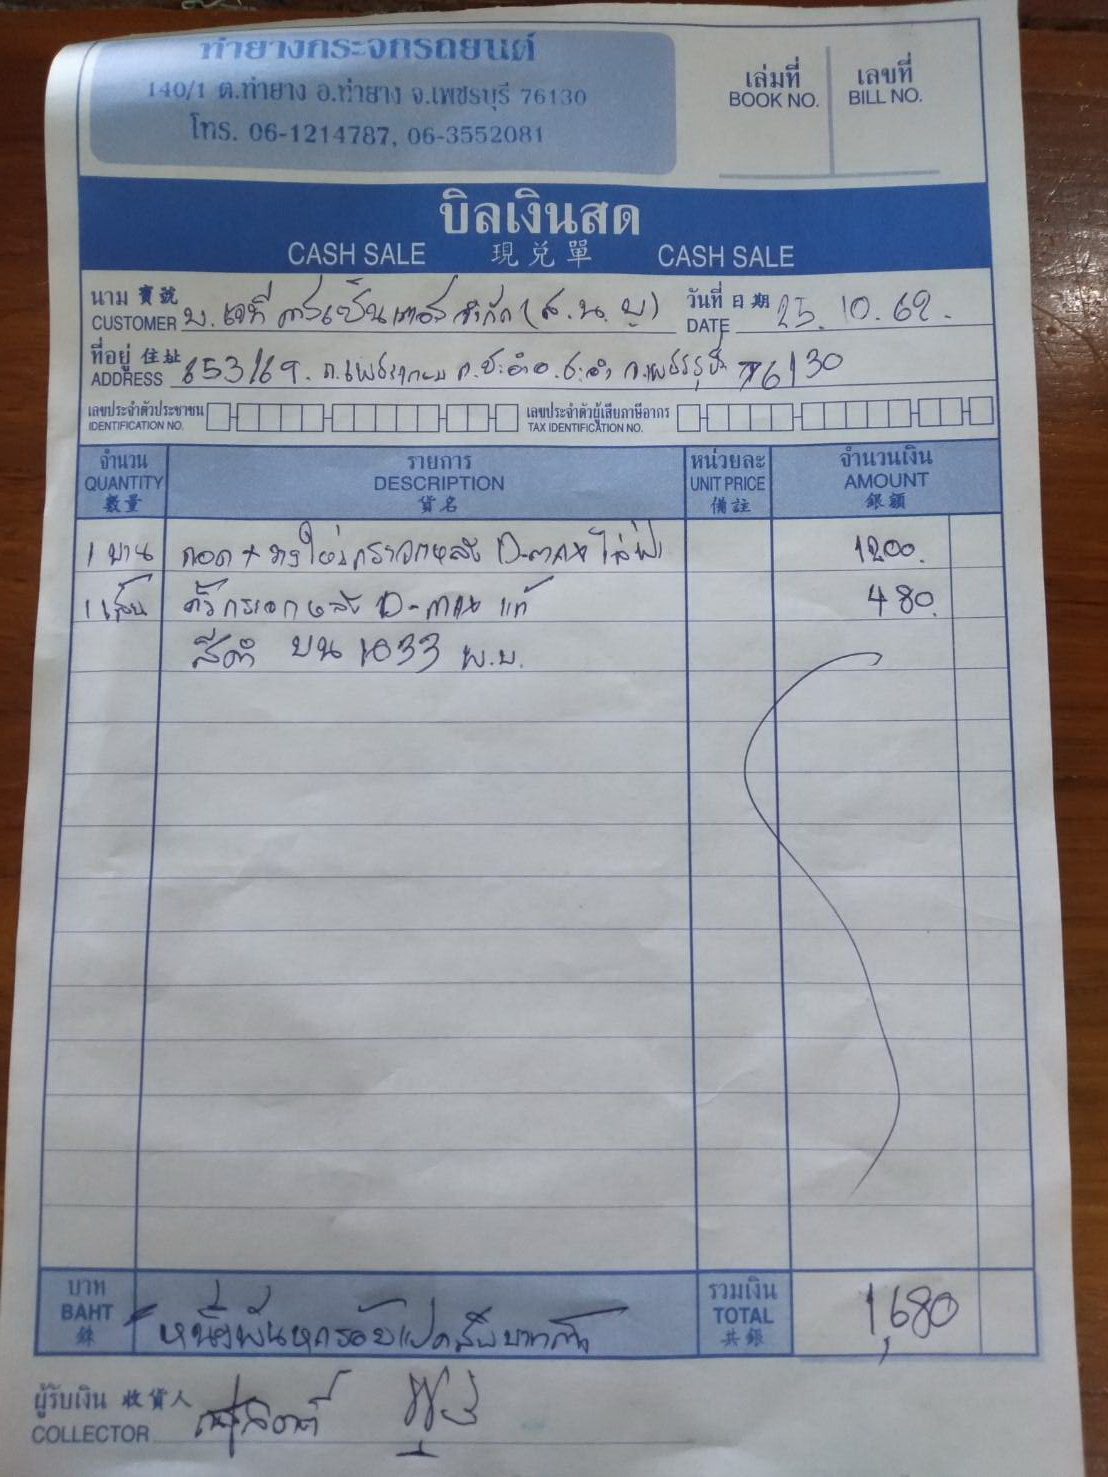 ท่ายางกระจกรถยนต์
140/1 ต.ท่ายาง อ.ท่ายาง จ.เพชรบุรี 76130
โทร. 06-1214787, 06-3552081
เล่มที่ เลขที่
BOOK NO. BILL NO.
บิลเงินสด
CASH SALE 現兌單 CASH SALE
นาม 寶號 วันที่ 日期
CUSTOMER บ. เจที คาร์เซ็นเตอร์ จำกัด (ส.น.ญ) DATE 25.10.62.
ที่อยู่ 住址
ADDRESS 853/69. ถ.เพชรเกษม ต.ชะอำ อ.ชะอำ จ.เพชรบุรี 76130
เลขประจำตัวประชาชน เลขประจำตัวผู้เสียภาษีอากร
IDENTIFICATION NO. TAX IDENTIFICATION NO.
จำนวน รายการ หน่วยละ จำนวนเงิน
QUANTITY DESCRIPTION UNIT PRICE AMOUNT
數量 貨名 備註 銀額
1 บาน ถอด + วางใหม่กระจกหลัง D-max 1200.
1 เส้น คิ้วกระจกหลัง D-max แท้ 480.
สีดำ บน 1033 พ.บ.
บาท รวมเงิน
BAHT หนึ่งพันหกร้อยแปดสิบบาทถ้วน TOTAL 1,680
銖 共銀
ผู้รับเงิน 收貨人
COLLECTOR